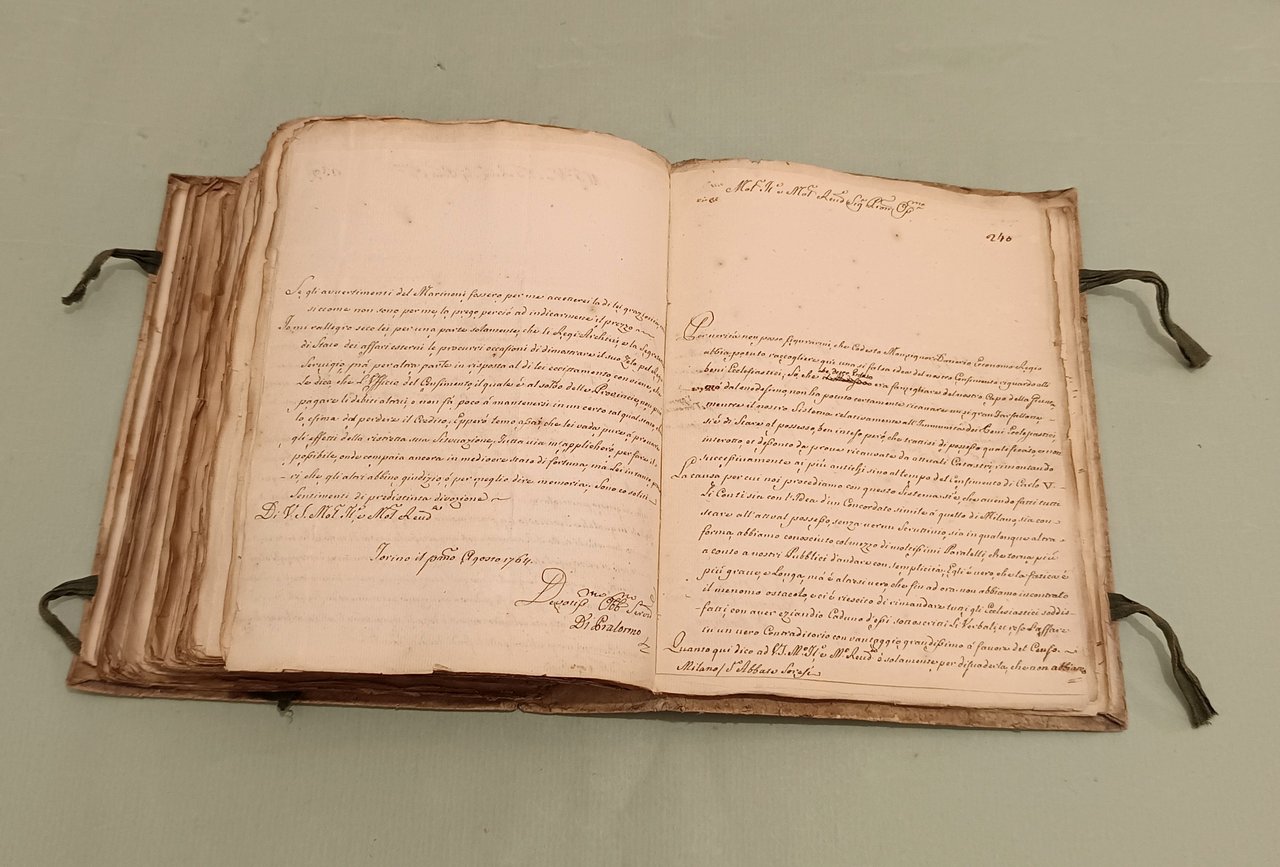 Se gli avvertimenti del Marinoni fossero per me accetterei la di lei
siccome non sono per me la prego perciò ad indicarmene il prezzo
Io mi rallegro seco lei per una parte solamente, che li Regi Archivi, e la
di Stato dei affari esterni le procurri occasioni di dimostrare il suo zelo pel Regio
Servigio, mà per altra parte in risposta al di lei eccitamento conviene, che
Le dica che l'Officio del Censimento il quale è al soldo delle Provincie non può
pagare li debiti altrui, e non fà poco à mantenersi in un certo tal qual stato
lo esima dal perdere il Credito; Epperò temo assai che lei vada pure à provare
gli effetti della ristretta sua Situazione, Tuttavia m'applicherò per fare il
possibile, onde compaia ancora in mediocre stato di fortuna, mà Lei intanto
ri, che gli altri abbino giudizio ò per meglio dire memoria, Sono co soliti
Sentimenti di predistinta divozione
Di V. S. Mol.º Ill.ᵉ e Mol.º Rev.ᵈᵃ
Torino il pmo Agosto 1764.
Devotis.ᵐᵒ Obb.ᵐᵒ Servid.
Di Pralormo
Mol.º Ill.ᵉ e Mol.º Rev.ᵈᵒ Sig.ʳ Pron. Oss.ᵐᵒ
240
Per verità non posso figurarmi, che Codesto Monsignor Daverio Economo Regio
abbia potuto raccogliere qui una sì falsa idea del nostro Censimento riguardo alli
beni Ecclesiastici, Sò che era famigliare del nostro Capo della Giunta
mà dal medesimo non ha potuto certamente ricavare un sì gran farfallone,
mentre il nostro Sistema relativamente all'Immunità dei Beni Ecclesiastici
si è di Stare al possesso, ben inteso però che trattisi di possesso qualificato e non
interotto, et desonto da prove ricavate da attuali Catastri, rimontando
successivamente ai più antichi sino al tempo del Censimento di Carlo V.
La causa per cui noi procediamo con questo Sistema si è, che avendo fatti tutti
li Conti sia con l'Idea d'un Concordato simile à quello di Milano, sia con
stare all'attual possesso, senza verun Scruttinio, sia in qualunque altra
forma, abbiamo conosciuto col mezzo di moltissimi Paralelli, che torna più
a conto a nostri Pubblici d'andare con semplicità; Egli è vero, che la fatica è
più grave, e longa, mà è altresì vero, che fin ad ora non abbiamo incontrato
il menomo ostacolo, e ci è riescito di rimandare tutti gli Ecclesiastici soddis-
fatti, con aver eziandio Caduno d'essi sottoscritti Li Verbali, e reso l'affare
in un vero Contraditorio con vantaggio grandissimo à favore del Censo.
Quanto qui dico ad V. S. M.º Ill.ᵉ e M.º Rev.ᵈᵃ è solamente per disuaderla, che non abbiamo
Milano / S.ʳ Abbate Soresi